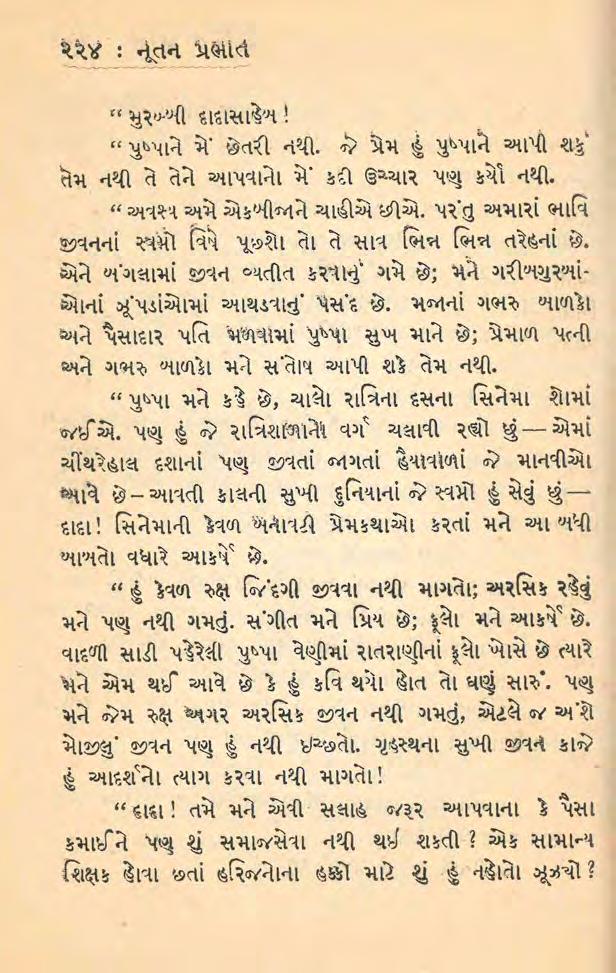 ૨૨૪ : નૂતન પ્રભાત
“ મુરબ્બી દાદાસાહેબ !
“ પુષ્પાને મેં છેતરી નથી. જે પ્રેમ હું પુષ્પાને આપી શકું
તેમ નથી તે તેને આપવાનો મેં કદી ઉચ્ચાર પણ કર્યો નથી.
“ અવશ્ય અમે એકબીજાને ચાહીએ છીએ. પરંતુ અમારાં ભાવિ
જીવનનાં સ્વપ્નો વિષે પૂછશો તો તે સાવ ભિન્ન ભિન્ન તરેહનાં છે.
એને બંગલામાં જીવન વ્યતીત કરવાનું ગમે છે; મને ગરીબગુરબાં-
ઓનાં ઝૂંપડાંઓમાં આથડવાનું પસંદ છે. મજાનાં ગભરુ બાળકો
અને પૈસાદાર પતિ મળવામાં પુષ્પા સુખ માને છે; પ્રેમાળ પત્ની
અને ગભરુ બાળકો મને સંતોષ આપી શકે તેમ નથી.
“ પુષ્પા મને કહે છે, ચાલો રાત્રિના દસના સિનેમા શોમાં
જઈએ. પણ હું જે રાત્રિશાળાનો વર્ગ ચલાવી રહ્યો છું — એમાં
ચીંથરેહાલ દશાનાં પણ જીવતાં જાગતાં હૈયાવાળાં જે માનવીઓ
આવે છે – આવતી કાલની સુખી દુનિયાનાં જે સ્વપ્નો હું સેવું છું —
દાદા! સિનેમાની કેવળ બનાવટી પ્રેમકથાઓ કરતાં મને આ બધી
બાબતો વધારે આકર્ષે છે.
“ હું કેવળ રુક્ષ જિંદગી જીવવા નથી માગતો; અરસિક રહેવું
મને પણ નથી ગમતું. સંગીત મને પ્રિય છે; ફૂલો મને આકર્ષે છે.
વાદળી સાડી પહેરેલી પુષ્પા વેણીમાં રાતરાણીનાં ફૂલો ખોસે છે ત્યારે
મને એમ થઈ આવે છે કે હું કવિ થયો હોત તો ઘણું સારું. પણ
મને જેમ રુક્ષ અગર અરસિક જીવન નથી ગમતું, એટલે જ અંશે
મોજીલું જીવન પણ હું નથી ઇચ્છતો. ગૃહસ્થના સુખી જીવન કાજે
હું આદર્શનો ત્યાગ કરવા નથી માગતો!
“ દાદા! તમે મને એવી સલાહ જરૂર આપવાના કે પૈસા
કમાઈને પણ શું સમાજસેવા નથી થઈ શકતી ? એક સામાન્ય
શિક્ષક હોવા છતાં હરિજનોના હક્કો માટે શું હું નહોતો ઝૂઝ્યો ?